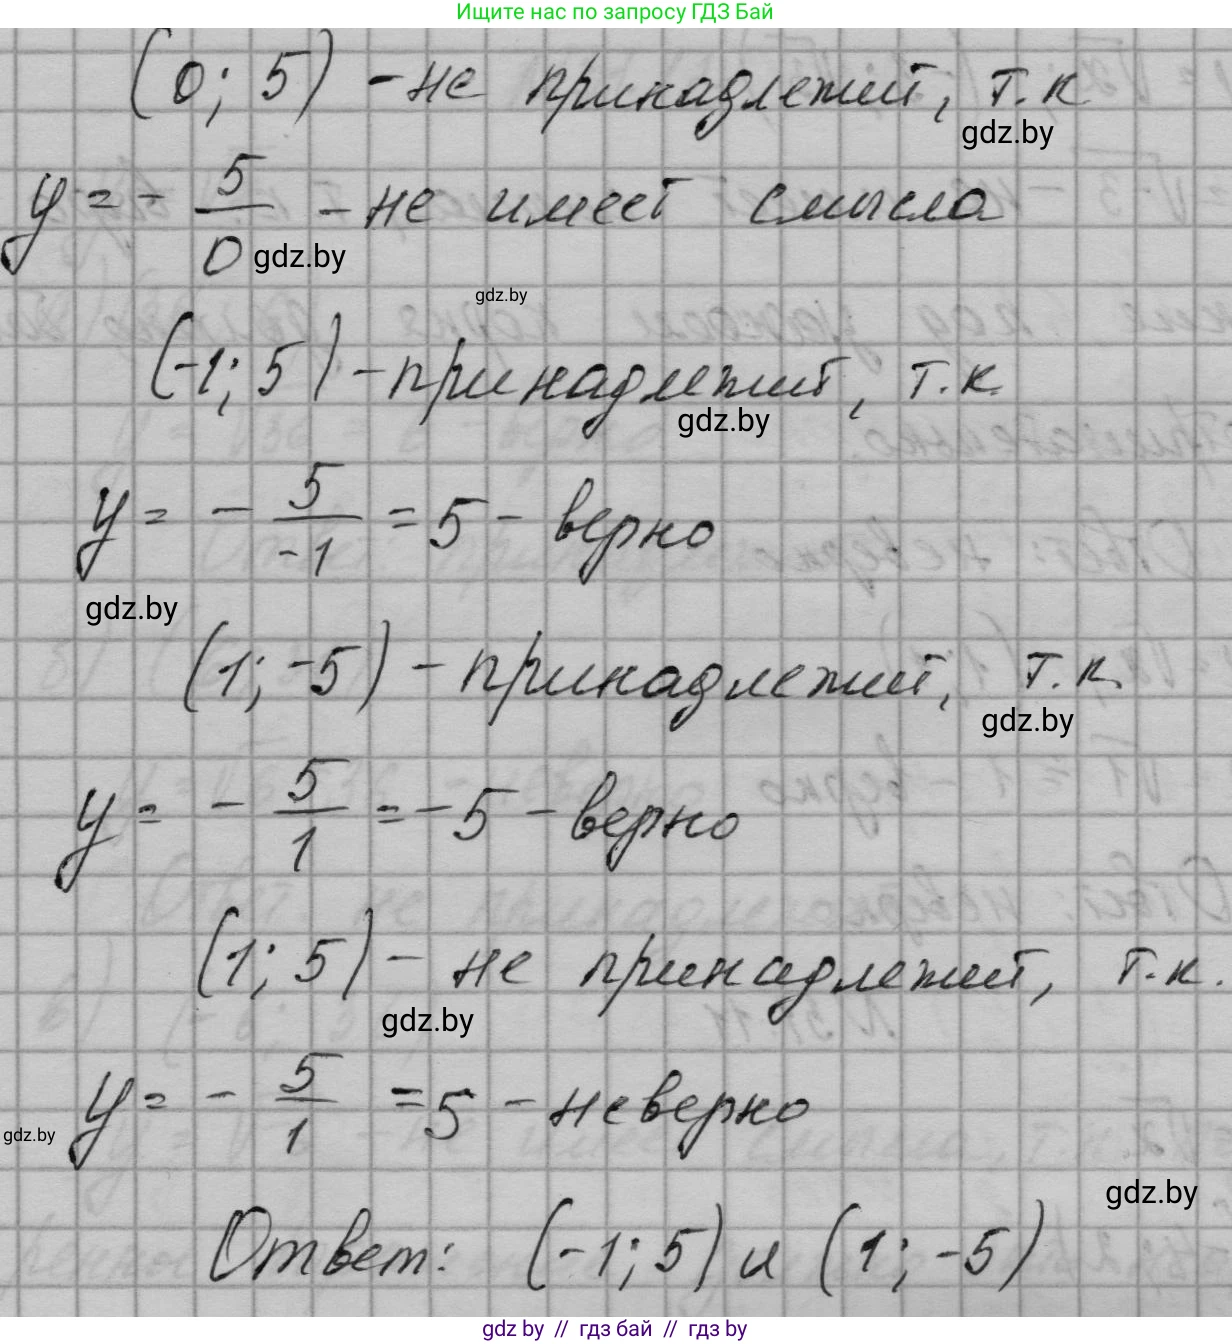 Ищите нас по запросу ГДЗ Бай
(0; 5) - не принадлежит, т.к
gdz.by
y = - 5/0 - не имеет смысла
gdz.by
gdz.by
(-1; 5) - принадлежит, т.к.
gdz.by
y = - 5/-1 = 5 - верно
gdz.by
(1; -5) - принадлежит, т.к.
gdz.by
y = - 5/1 = -5 - верно
(1; 5) - не принадлежит, т.к.
gdz.by
y = - 5/1 = 5 - неверно
gdz.by
gdz.by
Ответ: (-1; 5) и (1; -5)
gdz by // гдз бай // гдз by